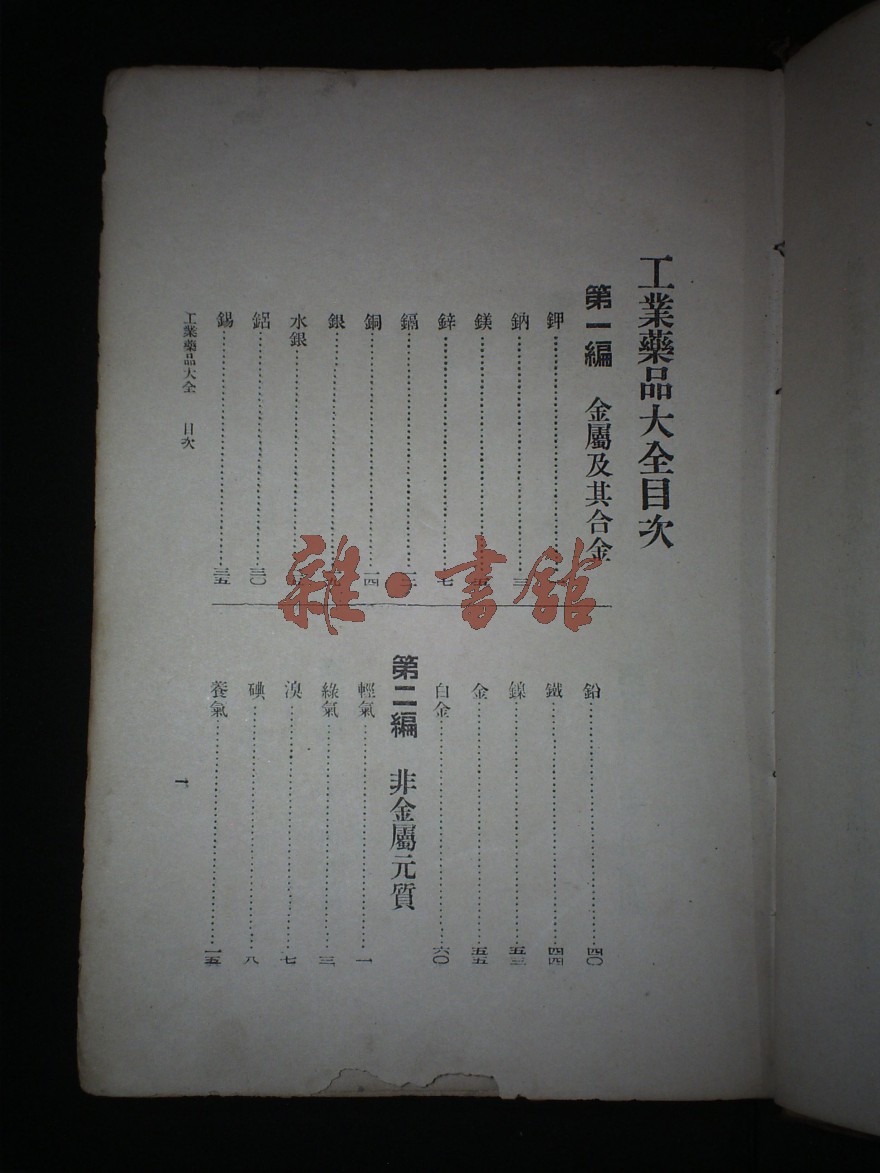 工業藥品大全目次
第一編 金屬及其合金
鉀
鈉 三
鎂
鋅 七
鎘
銅 一四
銀
水銀
鋁 三〇
錫 三五
鉛 四〇
鐵 四四
鎳 五三
金 五五
白金 六〇
第二編 非金屬元質
輕氣 一
綠氣 三
溴 七
碘 八
養氣 一五
工業藥品大全 目次
一
雜·書館